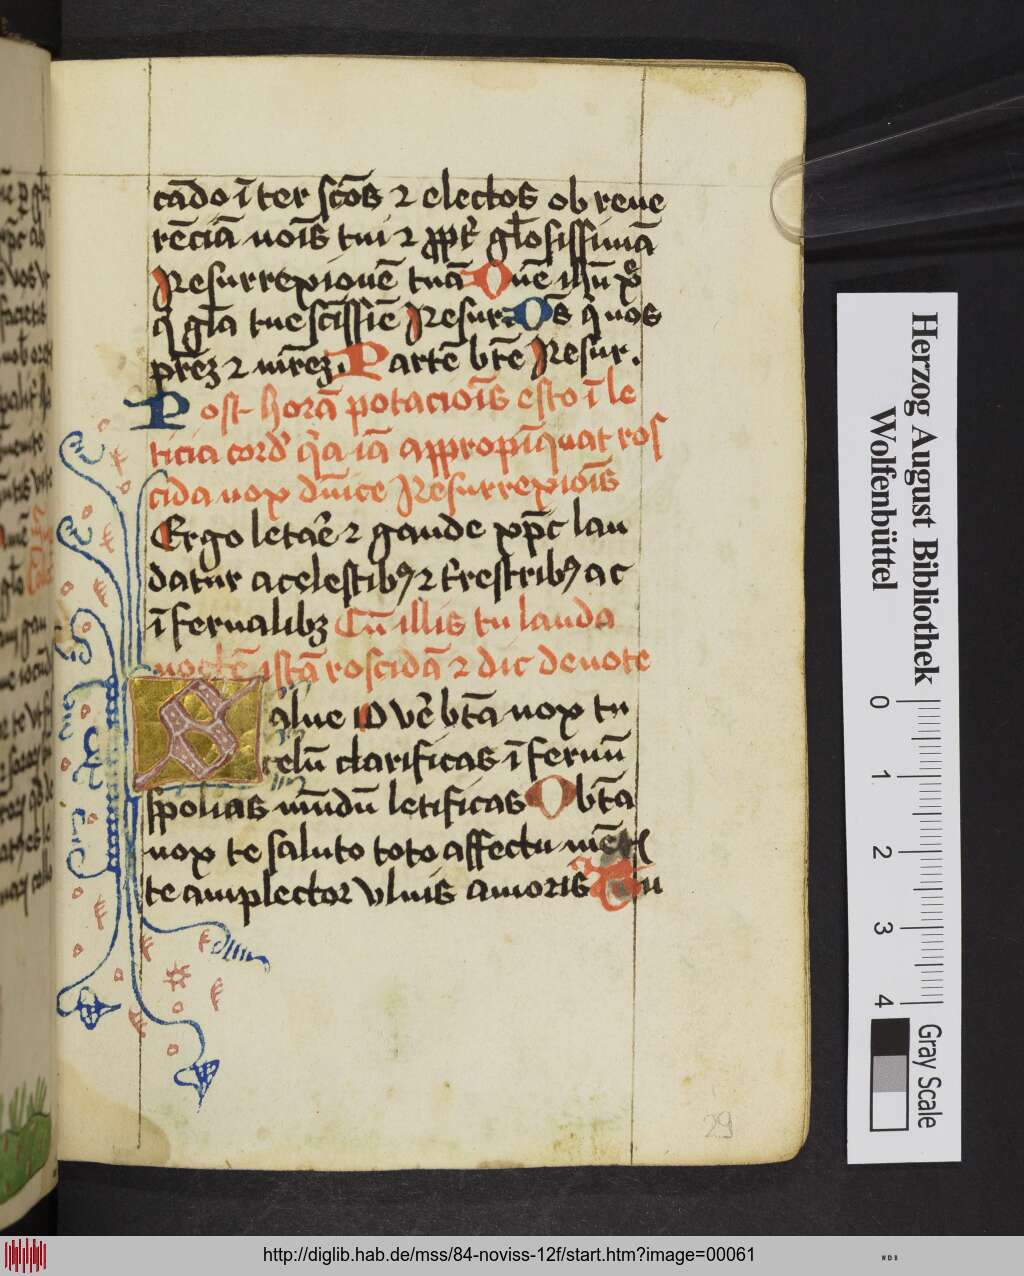 cādo īter sc̄os ⁊ electos ob reue
rēciā noīs tui ⁊ ꝓpt̄ gl̄osissimā
Resurrexionē tuā Dn̄e ih̄u xp̄e
q̄ gl̄a tue sc̄issīe Resur⁊ Os q̄ nos
pr̄ez ⁊ mr̄ez. Partē btē Resur.
Post horā potacioīs esto ī le
ticia cord̄ q̄a iā appropīquat ros
cida nox dn̄ice Resurrexioīs
Ergo letar̄e ⁊ gaude xp̄c lau
datur a celestibꝰ ⁊ t̄restribꝰ ac
īfernalibꝫ Cū illis tu lauda
noctē istā roscidā ⁊ dic deuote
Salue O ve̅ btā nox tu
celū clarificas īfernū
spolias mūdū letificas O btā
nox te saluto toto affectu mētꝭ
te amplector vlnis amoris Tu
29
Herzog August Bibliothek
Wolfenbüttel
0 1 2 3 4
Gray Scale
http://diglib.hab.de/mss/84-noviss-12f/start.htm?image=00061